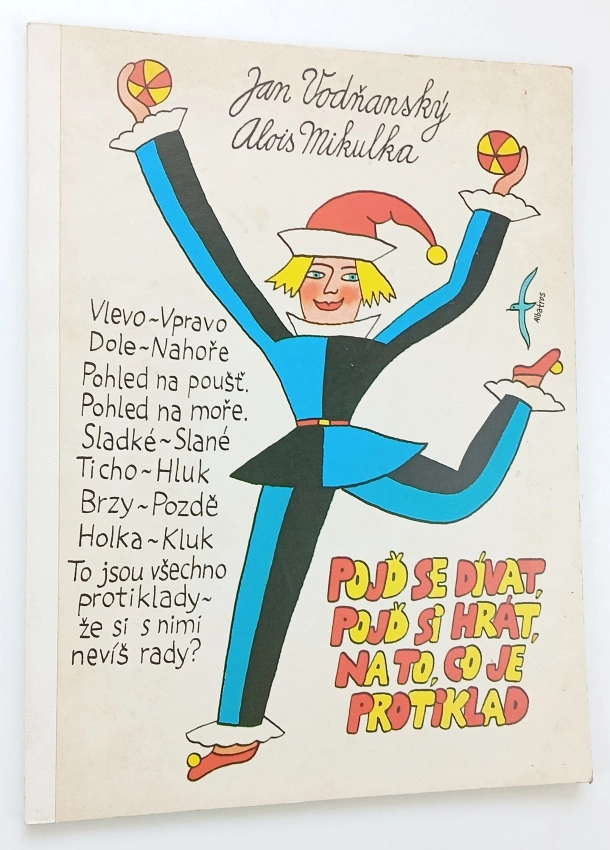 Jan Vodňanský
Alois Mikulka
Vlevo~Vpravo
Dole~Nahoře
Pohled na poušť.
Pohled na moře.
Sladké~Slané
Ticho~Hluk
Brzy~Pozdě
Holka~Kluk
To jsou všechno
protiklady~
že si s nimi
nevíš rady?
Albatros
POJĎ SE DÍVAT,
POJĎ Si HRÁT,
NA TO, CO JE
PROTiKLAD